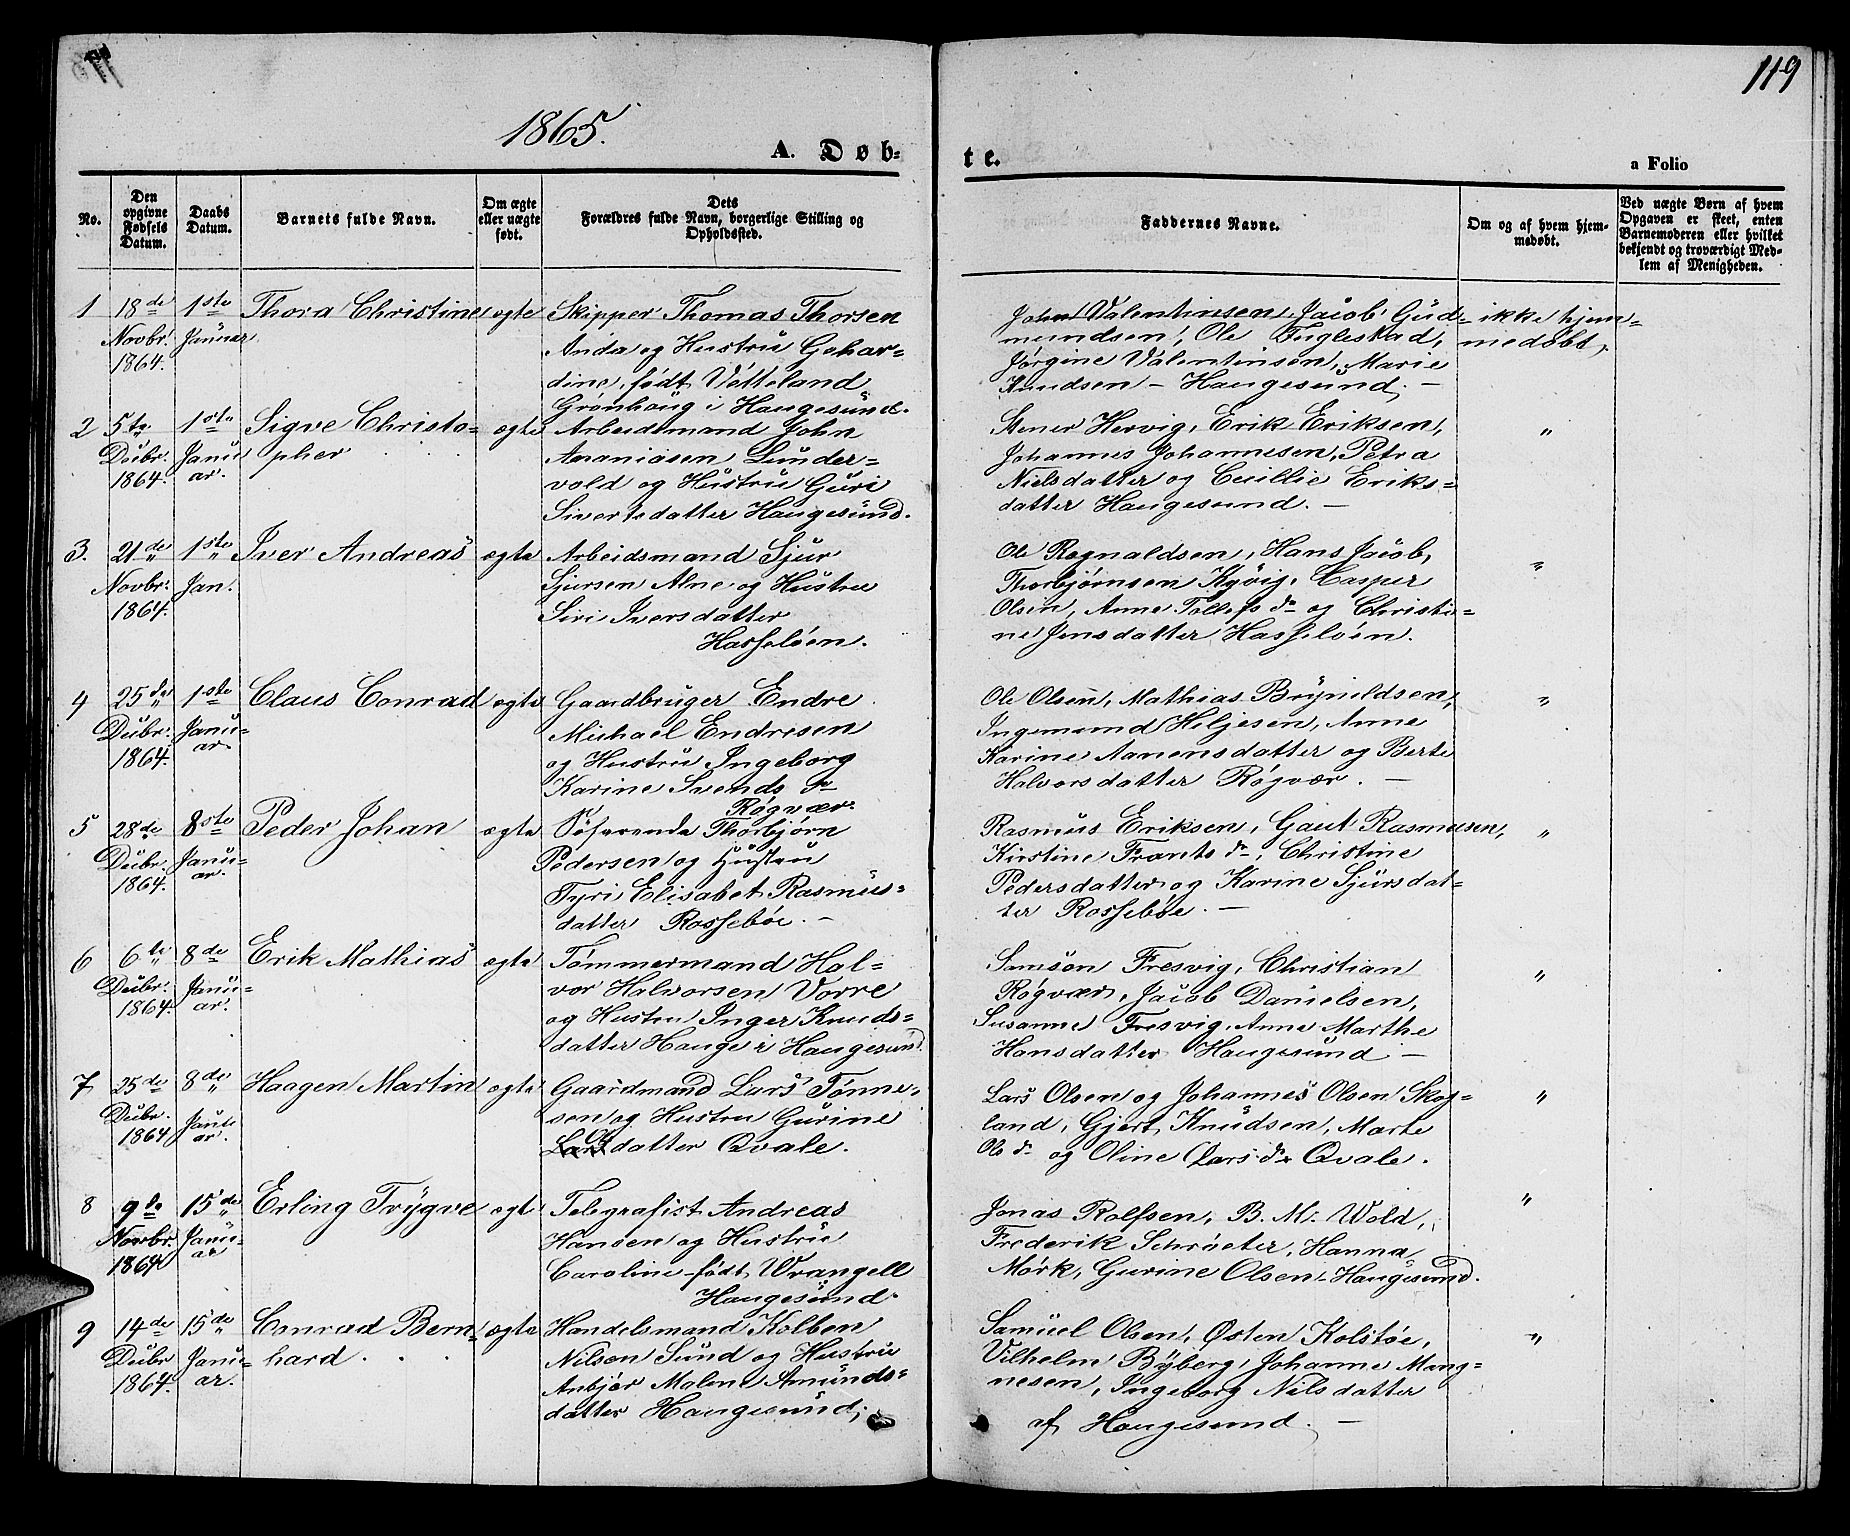 119
1865.
A. Døb-
te.
a Folio
No.
Den opgivne Fødsels Datum.
Daabs Datum.
Barnets fulde Navn.
Om ægte eller uægte født.
Dets Forældres fulde Navn, borgerlige Stilling og Opholdssted.
Faddernes Navne.
Om og af hvem hjemmedøbt.
Ved uægte Børn af hvem Opgaven er skeet, enten Barnemoderen eller hvilket bekjendt og troværdigt Medlem af Menigheden.
1 18de Novbr. 1864. 1ste Januar Thora Christine ægte
Skipper Thomas Thorsen
Anda og Hustru Gehar-
dine, født Vetteland
Grønhaug i Haugesund.
John Valentinsen, Jacob Gud-
mundsen, Ole Fuglestad,
Jørgine Valentinsen, Marie
Knudsen – Haugesund. –
ikke hjem-
medøbt.
2 5te Decbr. 1864. 1ste Januar. Sigve Christo-
pher
ægte
Arbeidsmand John
Ananiasen Lunder-
vold og Hustru Guri
Sivertsdatter Haugesund.
Stener Hervig, Erik Eriksen,
Johannes Johannesen, Petra
Nielsdatter og Cecillie Eriks-
datter Haugesund. –
"
3. 21de Novbr. 1864. 1ste Jan. Iver Andreas ægte
Arbeidsmand Sjur
Sjursen Alne og Hustru
Siri Iversdatter
Hasseløen.
Ole Rognaldsen, Hans Jacob,
Thorbjørnsen Kyvig, Casper
Olsen, Anne Tollefs dr og Christi-
ne Jensdatter Hasseløen.
"
4 25de Decbr. 1864. 1ste Januar Claus Conrad ægte
Gaardbruger Endre
Michael Endresen
og Hustru Ingeborg
Karine Svends dr
Røgvær.
Ole Olsen, Mathias Brynildsen,
Ingemund Hiljesen, Anne
Karine Aanensdatter og Berte
Halvorsdatter Røgvær. –
"
5 28de Decbr. 1864. 8ste Januar. Peder Johan ægte
Søfarende Thorbjørn
Pedersen og Hustru
Tyri Elisabet Rasmus-
datter Rossebøe. –
Rasmus Eriksen, Gaut Rasmussen,
Kirstine Frants dr, Christine
Pedersdatter og Karine Sjursdat-
ter Rossebøe. –
"
6 6te Decbr. 1864. 8de Januar. Erik Mathias ægte
Tømmermand Hal-
vor Halvorsen Vorre
og Hustru Inger Knuds-
datter Hauge i Haugesund.
Samson Fresvig, Christian
Røgvær, Jacob Danielsen,
Susanne Fresvig, Anne Marthe
Hansdatter Haugesund –
"
7 25de Decbr. 1864 8de Januar. Haagen Martin ægte
Gaardmand Lars Tønne-
sen og Hustru Gurine
datter Qvale.
Lars Olsen og Johannes Olsen Skog-
land, Gjert Knudsen, Marte
Ols dr og Oline Lars dr Qvale.
"
8 9de Novbr. 1864 15de Januar Erling Trygve ægte
Telegrafist Andreas
Hansen og Hustru
Caroline født Wrangell
Haugesund.
Jonas Rolfsen, B. M. Wold,
Frederik Schrøeter, Hanna
Mørk, Gurine Olsen, Haugesund.
"
9 14de Decbr 1864. 15de Januar. Conrad Bern-
hard
ægte
Handelsmand Kolben
Nilsen Sund og Hustru
Anbjør Malene Amunds-
datter Haugesund,
Samuel Olsen, Østen Kolstøe,
Vilhelm Byberg, Johanne Mang-
nesen, Ingeborg Nilsdatter
af Haugesund. –
"